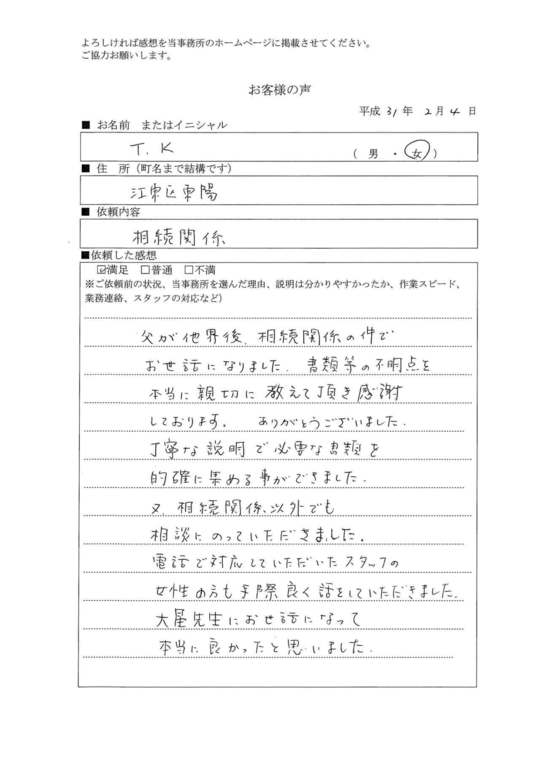 よろしければ感想を当事務所のホームページに掲載させてください。
ご協力お願いします。
お客様の声
平成 31 年 2 月 4 日
■ お名前 またはイニシャル
T. K （ 男 ・ 女 ）
■ 住 所（町名まで結構です）
江東区東陽
■ 依頼内容
相続関係
■依頼した感想
☑満足 □普通 □不満
※ご依頼前の状況、当事務所を選んだ理由、説明は分かりやすかったか、作業スピード、
業務連絡、スタッフの対応など）
父が他界後、相続関係の件で
お世話になりました。書類等の不明点を
本当に親切に教えて頂き感謝
しております。 ありがとうございました。
丁寧な説明で必要な書類を
的確に集める事ができました。
又、相続関係以外でも
相談にのっていただきました。
電話で対応していただいたスタッフの
女性の方も手際良く話をしていただきました。
大星先生にお世話になって
本当に良かったと思いました。